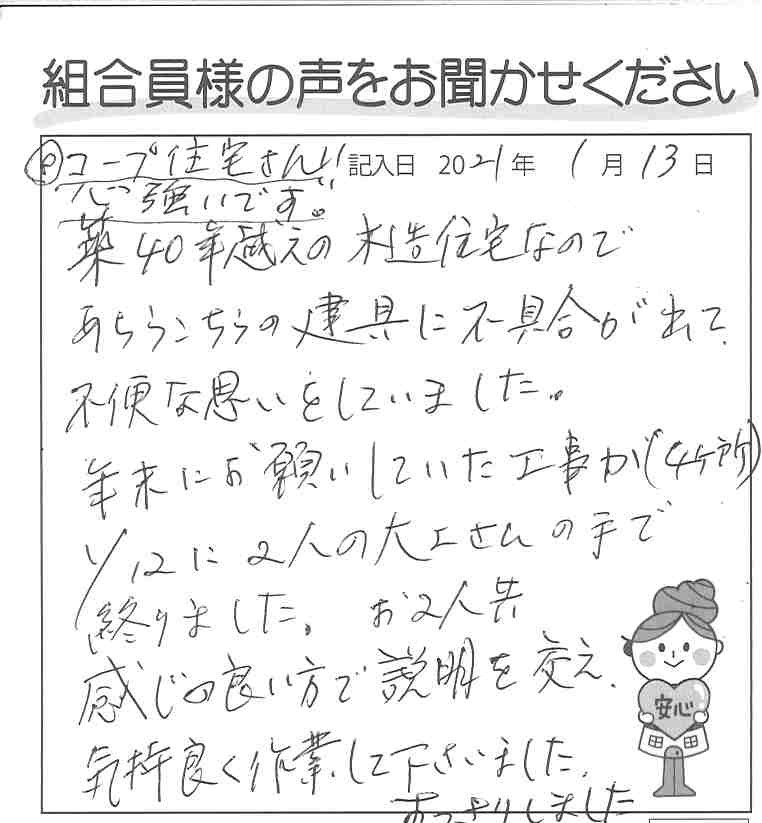 組合員様の声をお聞かせください
記入日 2021年 1月13日
Ⓟコープ住宅さん!!
心強いです。
築40年越えの木造住宅なので
あちらこちらの建具に不具合が出て
不便な思いをしていました。
年末にお願いしていた工事が(4ケ所)
1/12に2人の大工さんの手で
終りました。お2人共
感じの良い方で説明を交え、
気持良く作業して下さいました。
しました
安心